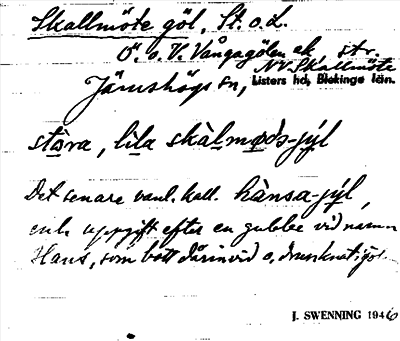 Skallmöte göl, St. o. L.
Ö. o. V. Vångagölen ek, str.
NV Skallmöte
Jämshögs sn, Listers hd, Blekinge län.
stora, lila skàlmøds-jyl
Det senare vanl. kall. hànsa-jyl,
enl. uppgift efter en gubbe vid namn
Hans, som bott därinvid o. drunknat i
J. SWENNING 1946